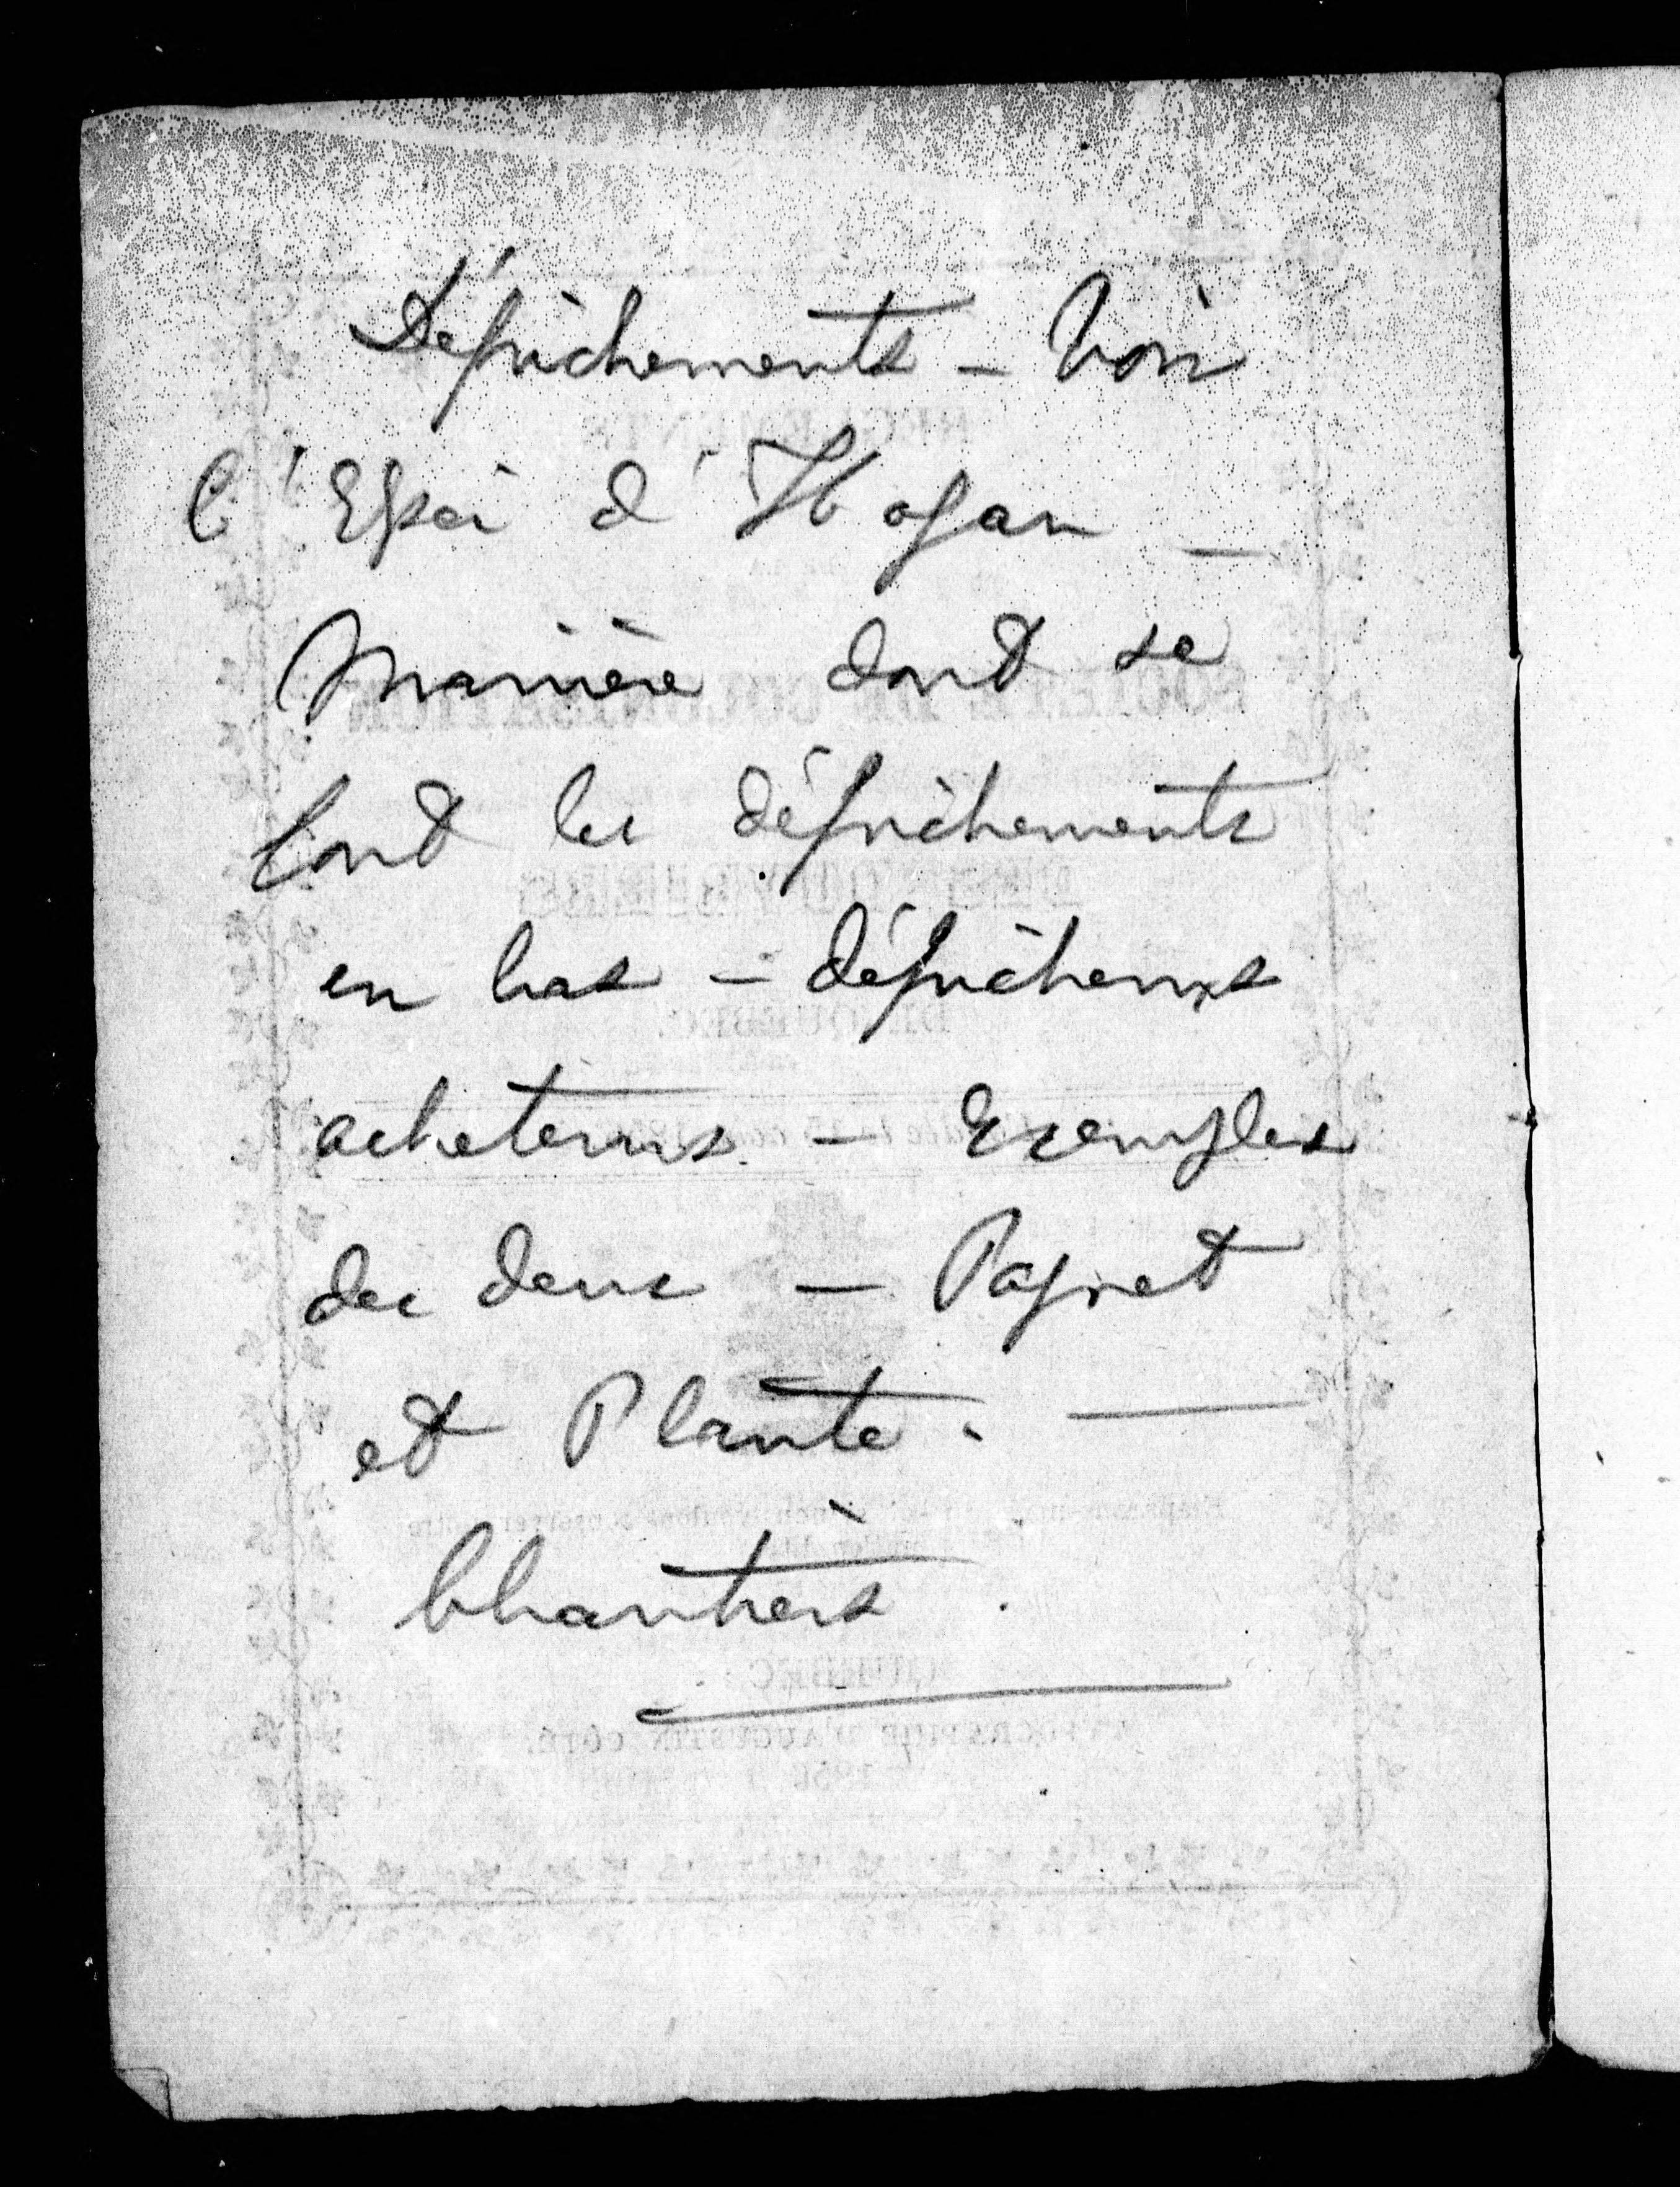 Défrichements – Voir
l'Essai d'Hogan –
Manière dont se
font les défrichements
en bas – défricheurs
acheteurs – Exemples
des deux – Paquet
et Plante. —
Chantiers.